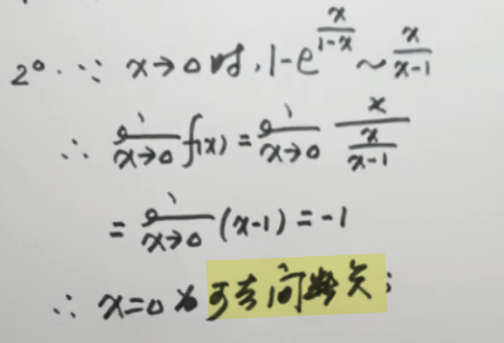 2°. ∵ x→0时, 1-e^{x/(1-x)} ~ x/(x-1)
∴ lim_{x→0} f(x) = lim_{x→0} x/(x/(x-1))
= lim_{x→0} (x-1) = -1
∴ x=0 为可去间断点;